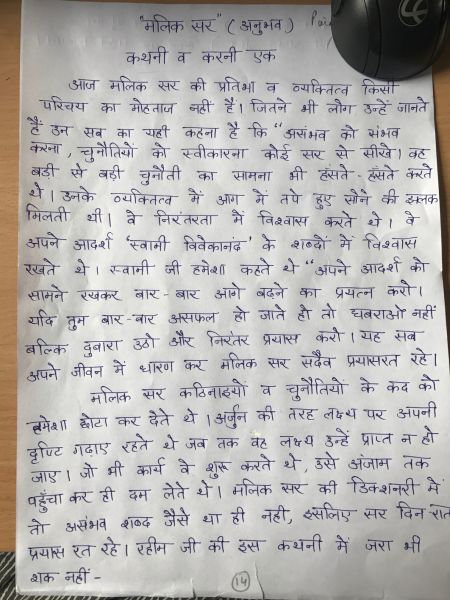 "मलिक सर" (अनुभव)
कथनी व करनी एक
आज मलिक सर की प्रतिभा व व्यक्तित्व किसी
परिचय का मोहताज नहीं है। जितने भी लोग उन्हें जानते
हैं उन सब का यही कहना है कि "असंभव को संभव
करना, चुनौतियों को स्वीकारना कोई सर से सीखे। वह
बड़ी से बड़ी चुनौती का सामना भी हँसते-हँसते करते
थे। उनके व्यक्तित्व में आग में तपे हुए सोने की झलक
मिलती थी। वे निरंतरता में विश्वास करते थे। वे
अपने आदर्श 'स्वामी विवेकानंद' के शब्दों में विश्वास
रखते थे। स्वामी जी हमेशा कहते थे "अपने आदर्श को
सामने रखकर बार-बार आगे बढ़ने का प्रयत्न करो।
यदि तुम बार-बार असफल हो जाते हो तो घबराओ नहीं
बल्कि दुबारा उठो और निरंतर प्रयास करो। यह सब
अपने जीवन में धारण कर मलिक सर सदैव प्रयासरत रहे।
मलिक सर कठिनाइयों व चुनौतियों के कद को
हमेशा छोटा कर देते थे। अर्जुन की तरह लक्ष्य पर अपनी
दृष्टि गढ़ाए रहते थे जब तक वह लक्ष्य उन्हें प्राप्त न हो
जाए। जो भी कार्य वे शुरू करते थे, उसे अंजाम तक
पहुँचा कर ही दम लेते थे। मलिक सर की डिक्शनरी में
तो असंभव शब्द जैसे था ही नही, इसलिए सर दिन रात
प्रयास रत रहे। रहीम जी की इस कथनी में जरा भी
शक नहीं -
14